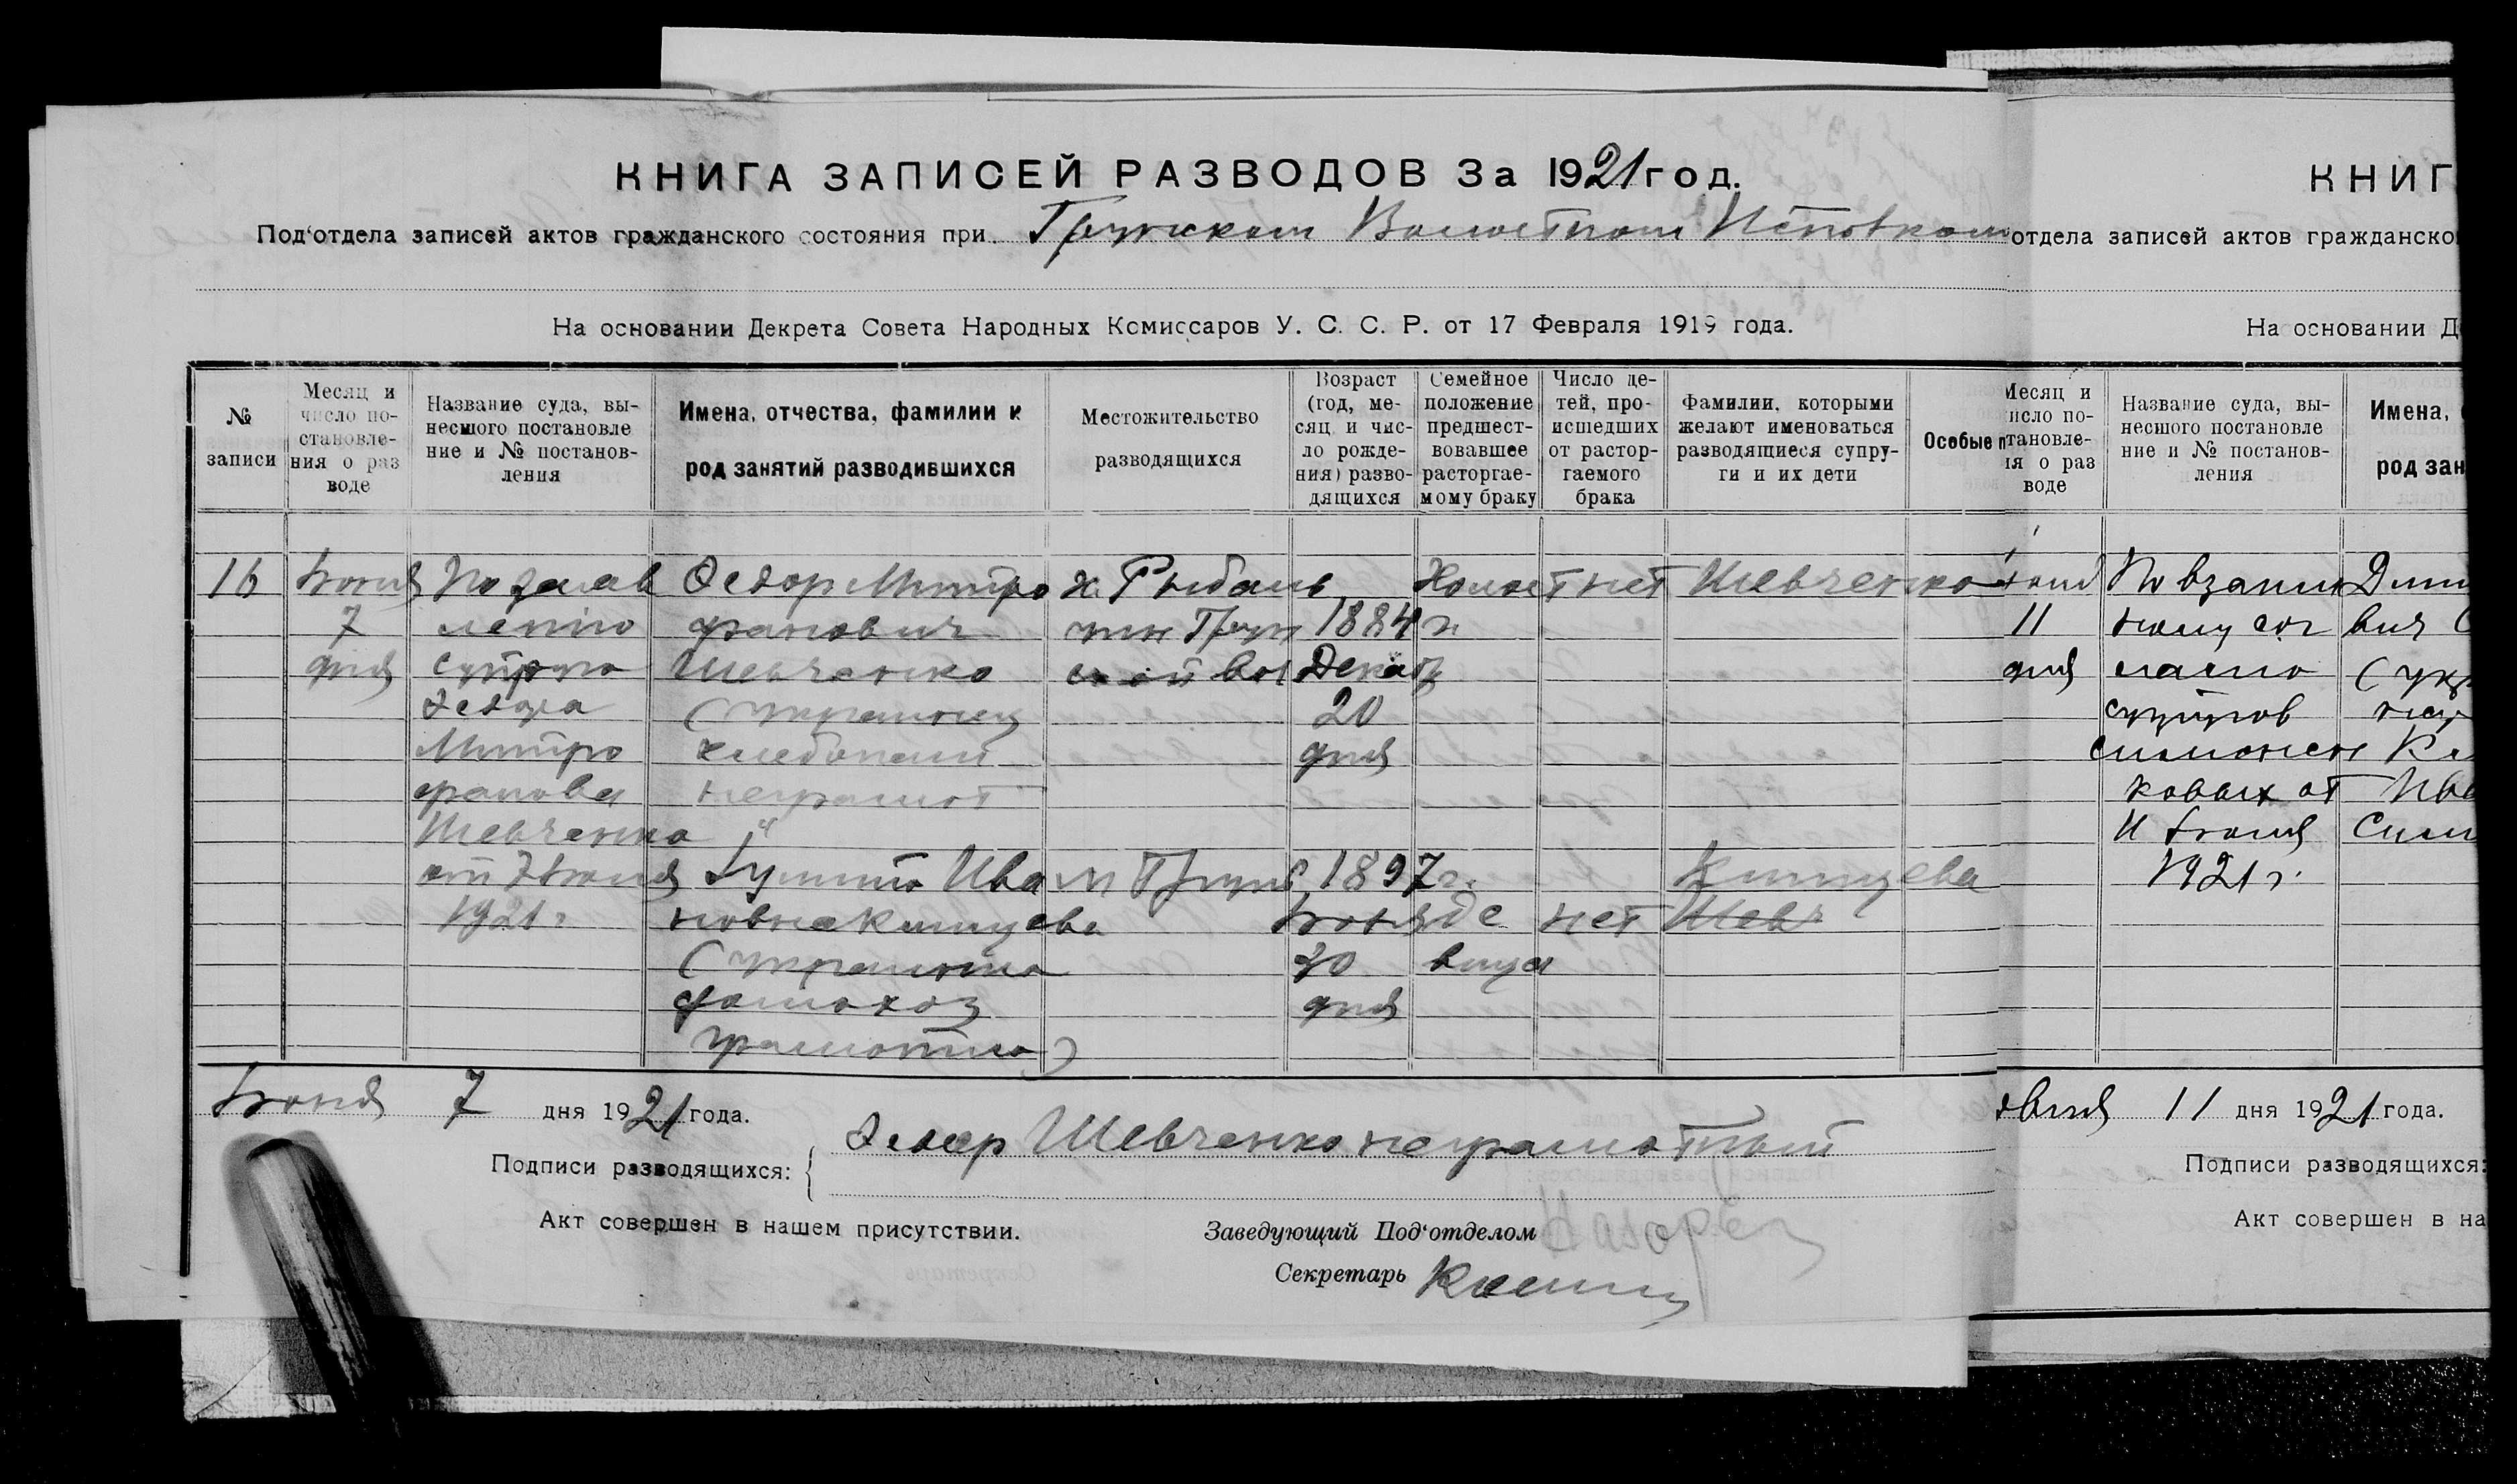 КНИГА ЗАПИСЕЙ РАЗВОДОВ За 1921 год.
Под‘отдела записей актов гражданского состояния при Грунском Волостном Исполком
На основании Декрета Совета Народных Комиссаров У. С. С. Р. от 17 Февраля 1919 года.
№ записи
Месяц и число по-становле-ния о раз воде
Название суда, вы-несшого постановле ние и № постанов-ления
Имена, отчества, фамилии и род занятий разводившихся
Местожительство разводящихся
Возраст (год, ме-сяц и чис-ло рожде-ния) разво-дящихся
Семейное положение предшест-вовавшее расторгае-мому браку
Число де-тей, про-исшедших от растор-гаемого брака
Фамилии, которыми желают именоваться разводящиеся супру-ги и их дети
Особые п
16
Июня
7
дня
По заяв
лению
супруга
Федора
Митро
фанова
Шевченко
от 7 Июня
1921 г
Федор Митро
фанович
Шевченко
(украинец
хлебопаш
неграмот
х. Рыбаль
Грун
ской вол
1884 г.
Декаб
20
дня
Холост
нет
Шевченко
Ива
новна
(украинка
домохоз
грамотна)
1897 г.
Июня
30
дня
де
вица
нет
Шевч
Июня 7 дня 1921 года.
Подписи разводящихся:
Федор Шевченко неграмотный
Акт совершен в нашем присутствии.
Заведующий Под‘отделом
Секретарь
КНИГ
отдела записей актов гражданско
На основании Д
Месяц и
исло по-
тановле-
ия о раз
воде
Название суда, вы-
несшого постановле
ние и № постанов-
ления
Имена,
род зан
11
дня
По взаим
ному сог
ласию
супругов
Симонен
ковых от
11 Июня
1921 г.
Дми
вич С
(укр
Ива
Сим
11 дня 1921 года.
Подписи разводящихся:
Акт совершен в на